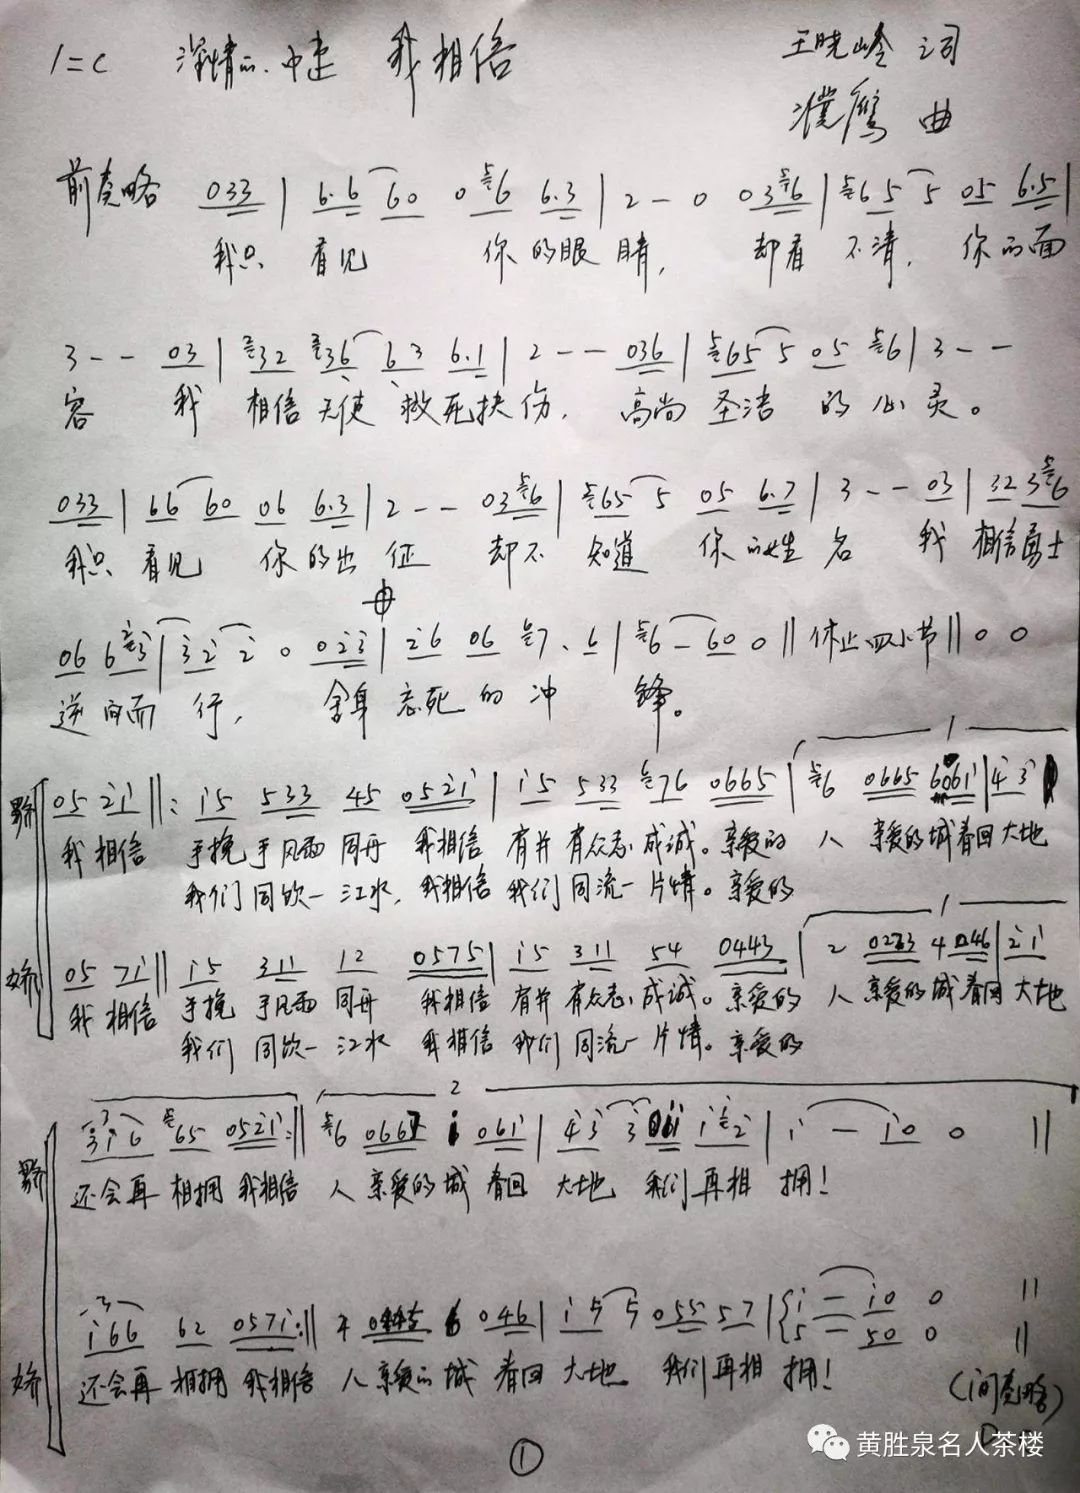 1=C 深情的.中速 我相信 王晓岭 词
濮鹰 曲
前奏略 033 | 6.6 60 0 6 6.3 | 2 - 0 036 | 65 5 05 6.5 |
我只 看见 你的眼睛, 却看 不清, 你的面
3 - - 03 | 32 36 63 6.1 | 2 - - 036 | 65 5 05 6 | 3 - -
容 我 相信天使救死扶伤, 高尚圣洁 的心灵。
033 | 66 60 06 6.3 | 2 - - 036 | 65 5 05 6.7 | 3 - - 03 | 32 36
我只 看见 你的出征 却不知道 你的姓名 我 相信勇士
06 63 | 32 2 0 023 | 26 06 7.6 | 6 - 60 0 || 休止四小节 || 0 0
逆向而行, 舍身忘死的冲锋。
1
05 21 ||: 15 533 45 0521 | 15 533 76 0665 | 6 0665 6061 | 43
我相信 手挽手风雨同舟 我相信 有并有众志成诚。亲爱的 人 亲爱的城春回大地
我们同饮一江水, 我相信 我们同流一片情。亲爱的
1
05 71 || 15 311 12 0575 | 15 311 54 0443 | 2 0223 4046 | 21
我相信 手挽手风雨同舟 我相信 有并有众志成诚。亲爱的 人 亲爱的城春回大地
我们同饮一江水 我相信 我们同流一片情。亲爱的
2
316 65 0521 :|| 6 0667 1 061 | 43 3 061 12 | 1 - 10 0 ||
还会再相拥 我相信 人 亲爱的城 春回 大地 我们再相拥!
166 62 0571 :|| 4 0445 6 046 | 15 5 055 57 | 1 - 10 0 ||
5 - 50 0 ||
还会再相拥 我相信 人 亲爱的城 春回大地 我们再相拥!
(间奏略)
①
黄胜泉名人茶楼